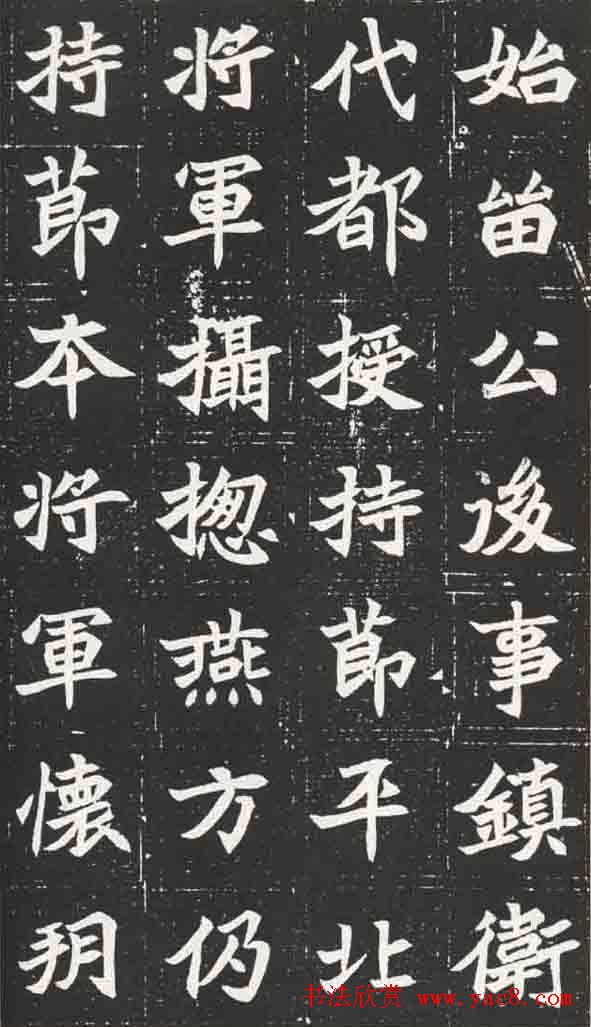 始留公後事鎮衛
代都授持莭平北
将軍攝揔燕方仍
持莭本将軍懷朔
书法欣赏 www.yac8.com